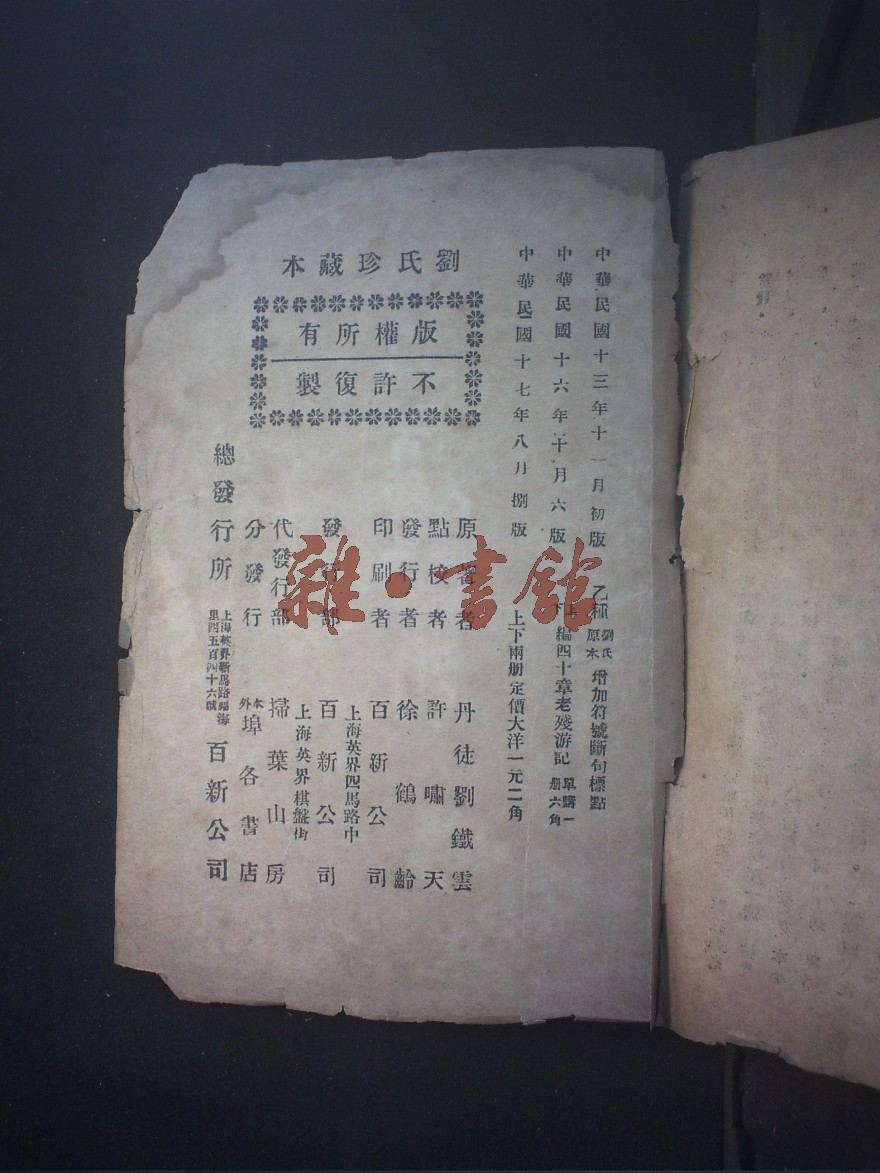 中華民國十三年十一月初版
中華民國十六年十月六版
中華民國十七年八月捌版
乙種 劉氏原本 增加符號斷句標點
上下編四十章老殘游記 單購一册六角
上下兩册定價大洋一元二角
劉氏珍藏本
版權所有
不許復製
原著者 丹徒劉鐵雲
點校者 許嘯天
發行者 徐鶴齡
印刷者 百新公司
上海英界四馬路中
發行部 百新公司
上海英界棋盤街
代發行部 掃葉山房
分發行 本外埠各書店
總發行所 上海英界新馬路福海里四五百四十六號 百新公司
雜·書館